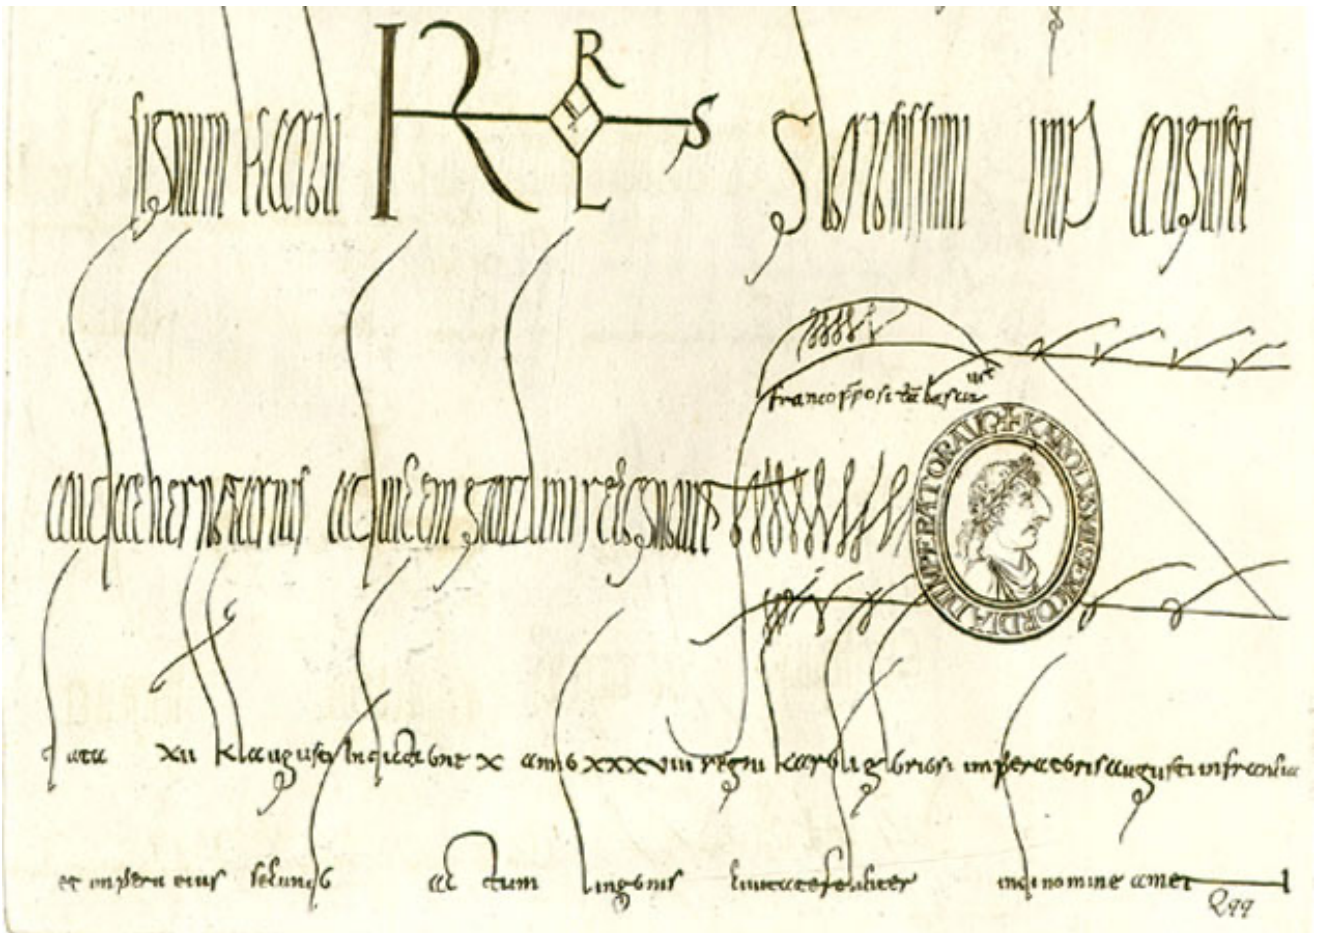 signum karoli K R L S gloriosissimi imp augusti
audacher notarius ad vicem gauzlini recognovit
+ KAROLUS MISERICORDIA DI IMPERATOR AUG
data xii kl augusti indictione x anno xxxviii regni karoli gloriosi imperatoris augusti in francia
et imperii eius secundo actum lingonis civitate feliciter in di nomine amen